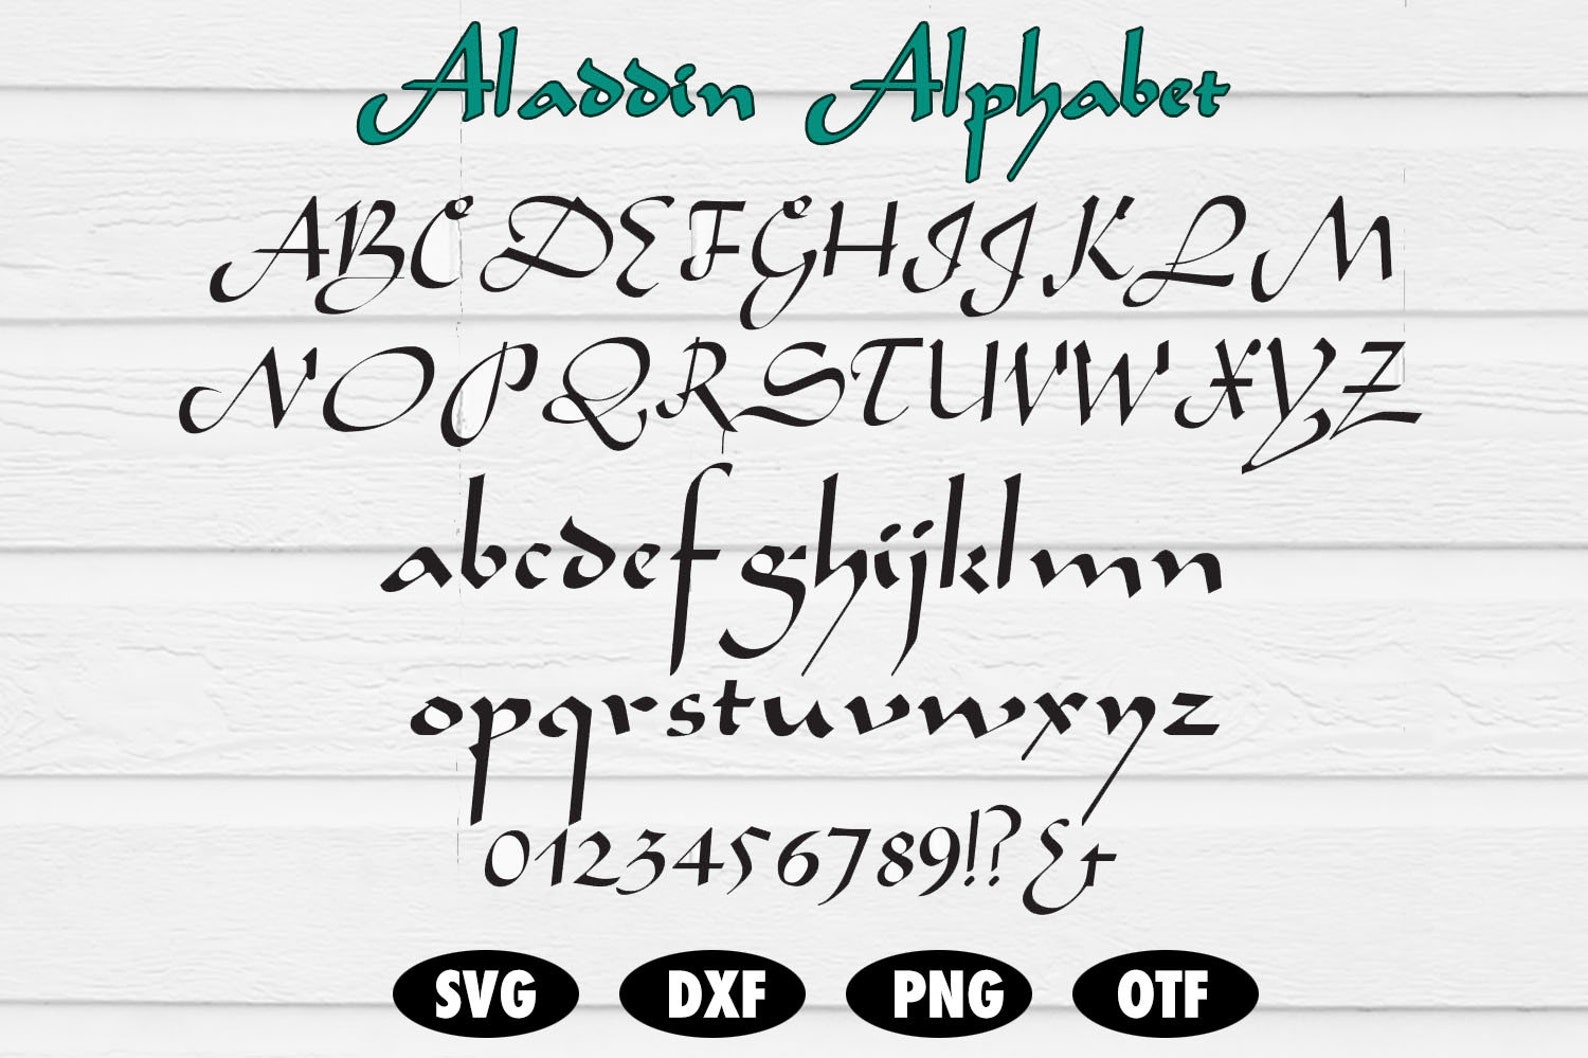 Aladdin Alphabet
ABCDEFGHIJKLM
NOPQRSTUVWXYZ
abcdefghijklmn
opqrstuvwxyz
0123456789!?&
SVG DXF PNG OTF